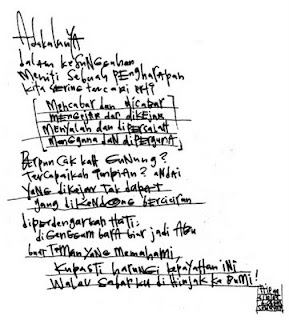 Adakalanya
dalam kesunggahan
Meniti sebuah pengharapan
kita sering tercari
Mencabar dan dicabar
mengejar dan dikejar
Menyalah dan dipersalah
mengguna dan diperguna
Berpuncak kah gunung?
Tercapaikah impian? andai
yang dikejar tak dapat
yang dikendong berciciran
diperdengarkah hati:
digenggam bara biar jadi abu
buat teman yang memahami,
kupasti harungi kepayahan ini
walau sabarku dipinjak ke bumi!